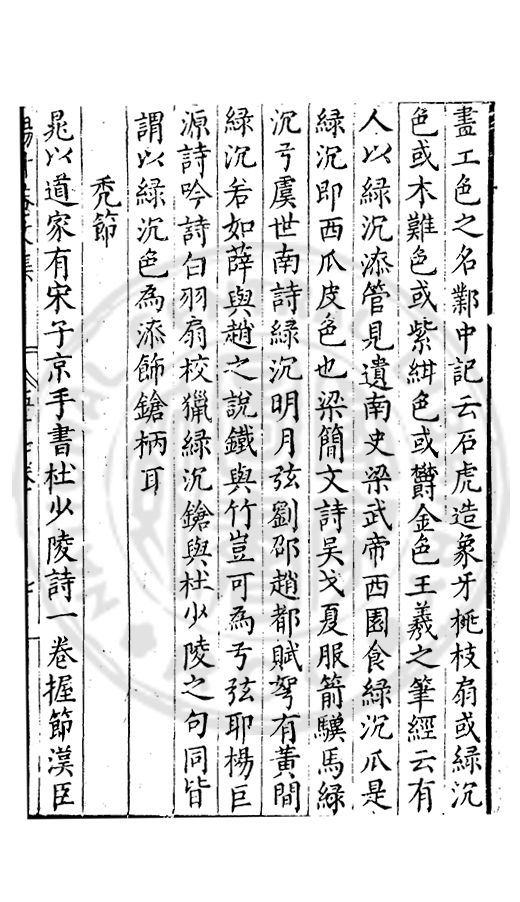 畫工色之名鄴中記云石虎造象牙桃枝扇或綠沉
色或木難色或紫紺色或欝金色王羲之筆經云有
人以綠沉漆管見遺南史梁武帝西園食綠沉瓜是
綠沉即西瓜皮色也梁簡文詩吳戈夏服箭驥馬綠
沉弓虞世南詩綠沉明月弦劉邵趙都賦弩有黃間
綠沉若如薛與趙之說鐵與竹豈可為弓弦耶楊巨
源詩吟詩白羽扇校獵綠沉鎗與杜少陵之句同皆
謂以綠沉色為漆飾鎗柄耳
禿節
晁以道家有宋子京手書杜少陵詩一卷握節漢臣